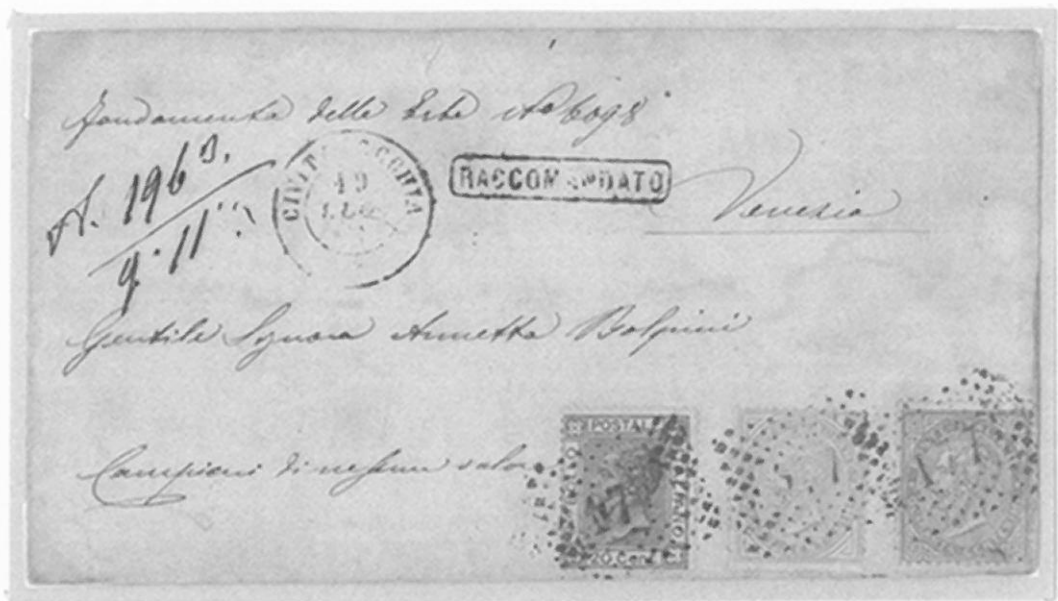 Fondamenta delle Erbe No 6098
N. 1960
g. 11
CIVITAVECCHIA
19
LUG
RACCOMANDATO
Venezia
Gentile Signora Annetta Bolpini
Campioni di nessun valore
POSTAL
20 Cent